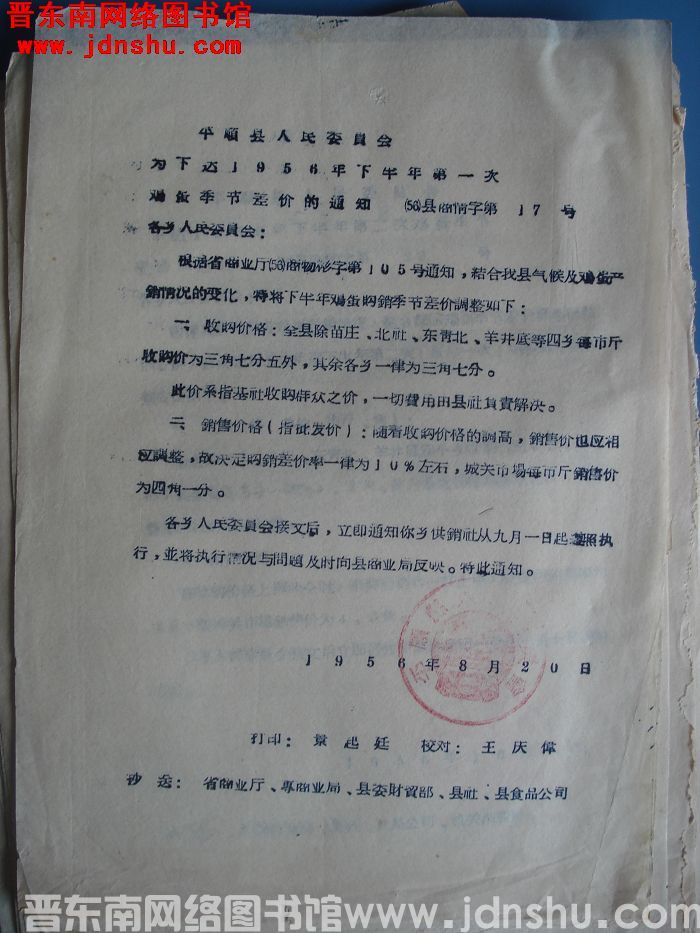 晋东南网络图书馆
www.jdnshu.com
平順县人民委員会
为下达1956年下半年第一次
鸡蛋季节差价的通知 (56)县商情字第17号
各乡人民委員会:
根据省商业厅(56)商物杉字第105号通知,結合我县气候及鸡蛋产
銷情况的变化,特将下半年鸡蛋购銷季节差价調整如下:
一、收购价格:全县除苗庄、北社、东青北、羊井底等四乡每市斤
收购价为三角七分五外,其余各乡一律为三角七分。
此价系指基社收购群众之价,一切費用由县社負責解决。
二、銷售价格(指批发价):随着收购价格的調高,銷售价也应相
应調整,故决定购銷差价率一律为10%左右,城关市場每市斤銷售价
为四角一分。
各乡人民委員会接文后,立即通知你乡供銷社从九月一日起遵照执
行,並将执行情况与問題及时向县商业局反映。特此通知。
1956年8月20日
打印:景起廷 校对:王庆偉
抄送:省商业厅、專商业局、县委財貿部、县社、县食品公司
晋东南网络图书馆 www.jdnshu.com